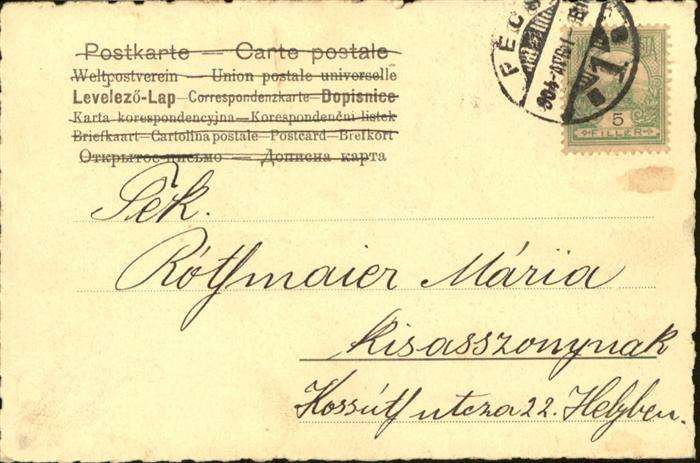 Postkarte — Carte postale
Weltpostverein — Union postale universelle
Levelező-Lap — Correspondenzkarte — Dopisnice
Karta korespondencyjna — Korespondenčni listek
Briefkaart — Cartolina postale — Postcard — Brefkort
Открытое письмо — Дописна карта
PÉCS
904
1
5
FILLÉR
Ték.
Róthmaier Mária
Kisasszonynak
Kossúth utcza 22. Helyben.